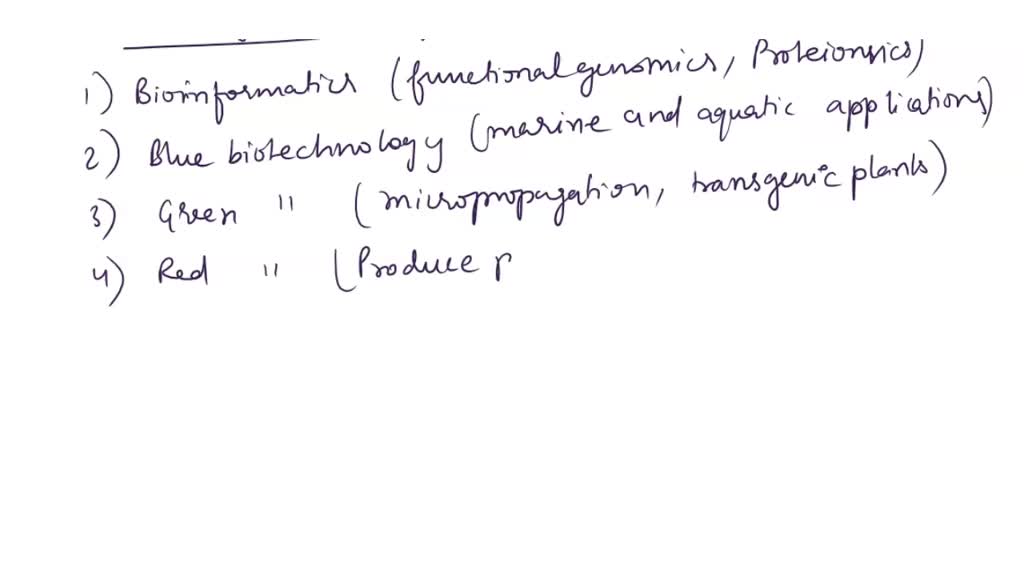 1) Bioinformatics (functional genomics, Proteionsics)
2) Blue biotechnology (marine and aquatic applications)
3) Green " (micropropagation, transgenic plants)
4) Red " (Produce p